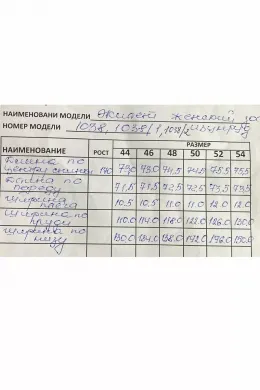 НАИМЕНОВАНИ МОДЕЛИ женский
НОМЕР МОДЕЛИ 1038, 1038/1, 1038/2
РАЗМЕР
НАИМЕНОВАНИЕ РОСТ 44 46 48 50 52 54
Длина по
центру спинки 170 74,5 75,5 75,5
Длина по
переду 71,5 71,5 72,5 72,5 73,5 73,5
Ширина
плеча 10.5 10.5 11.0 11.0 12.0 12.0
Ширина по
груди 110.0 114.0 118.0 126.0 130.0
Ширина по
низу 130.0 134.0 138.0 142.0 146.0 150.0